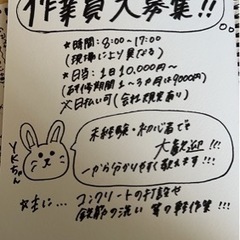 作業員大募集!!
*時間：8:00～17:00
(現場により異なる)
*日当：1日10,000円～
(研修期間1～3ヵ月は9000円)
日払い可(会社規定有り)
YKちゃん
未経験・初心者でも
大歓迎!!!
一から分かりやすく教えます!!!
*主に… コンクリートの打設や
鉄筋の洗い 等の軽作業!!!